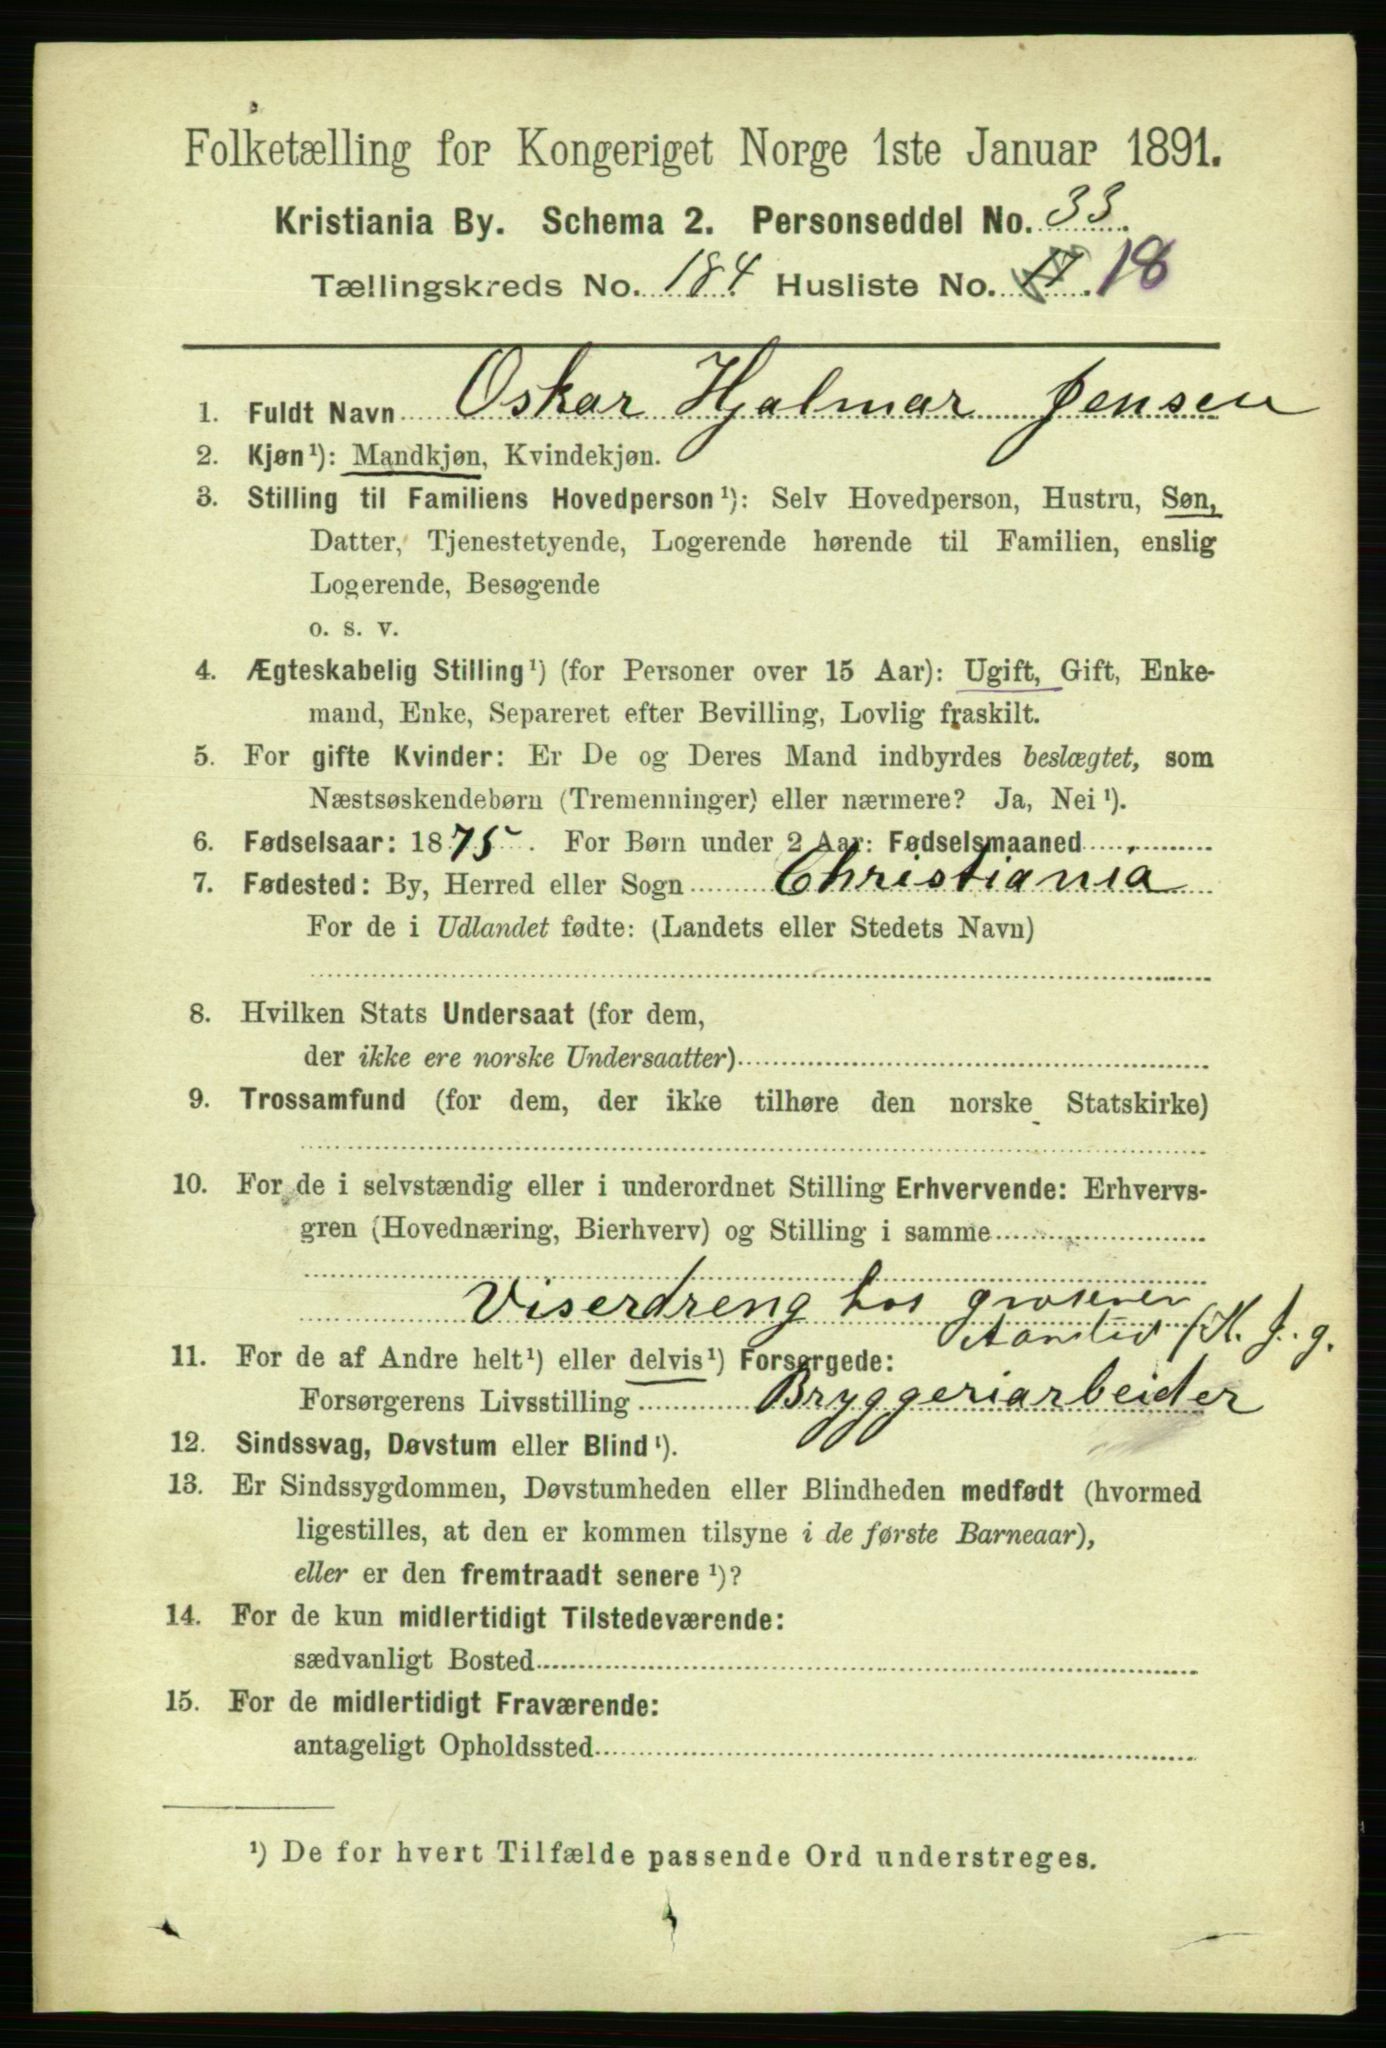 Folketælling for Kongeriget Norge 1ste Januar 1891.
Kristiania By. Schema 2. Personseddel No. 33.
Tællingskreds No. 184 Husliste No. 17. 18
1. Fuldt Navn Oskar Hjalmar Jensen
2. Kjøn¹): Mandkjøn, Kvindekjøn.
3. Stilling til Familiens Hovedperson¹): Selv Hovedperson, Hustru, Søn,
Datter, Tjenestetyende, Logerende hørende til Familien, enslig
Logerende, Besøgende
o. s. v.
4. Ægteskabelig Stilling¹) (for Personer over 15 Aar): Ugift, Gift, Enke-
mand, Enke, Separeret efter Bevilling, Lovlig fraskilt.
5. For gifte Kvinder: Er De og Deres Mand indbyrdes beslægtet, som
Næstsøskendebørn (Tremenninger) eller nærmere? Ja, Nei¹).
6. Fødselsaar: 1875. For Børn under 2 Aar: Fødselsmaaned
7. Fødested: By, Herred eller Sogn Christiania
For de i Udlandet fødte: (Landets eller Stedets Navn)
8. Hvilken Stats Undersaat (for dem,
der ikke ere norske Undersaatter)
9. Trossamfund (for dem, der ikke tilhøre den norske Statskirke)
10. For de i selvstændig eller i underordnet Stilling Erhvervende: Erhvervs-
gren (Hovednæring, Bierhverv) og Stilling i samme
Viserdreng hos
11. For de af Andre helt¹) eller delvis¹) Forsørgede:
Forsørgerens Livsstilling Bryggeriarbeider
12. Sindssvag, Døvstum eller Blind¹).
13. Er Sindssygdommen, Døvstumheden eller Blindheden medfødt (hvormed
ligestilles, at den er kommen tilsyne i de første Barneaar),
eller er den fremtraadt senere¹)?
14. For de kun midlertidigt Tilstedeværende:
sædvanligt Bosted
15. For de midlertidigt Fraværende:
antageligt Opholdssted
¹) De for hvert Tilfælde passende Ord understreges.